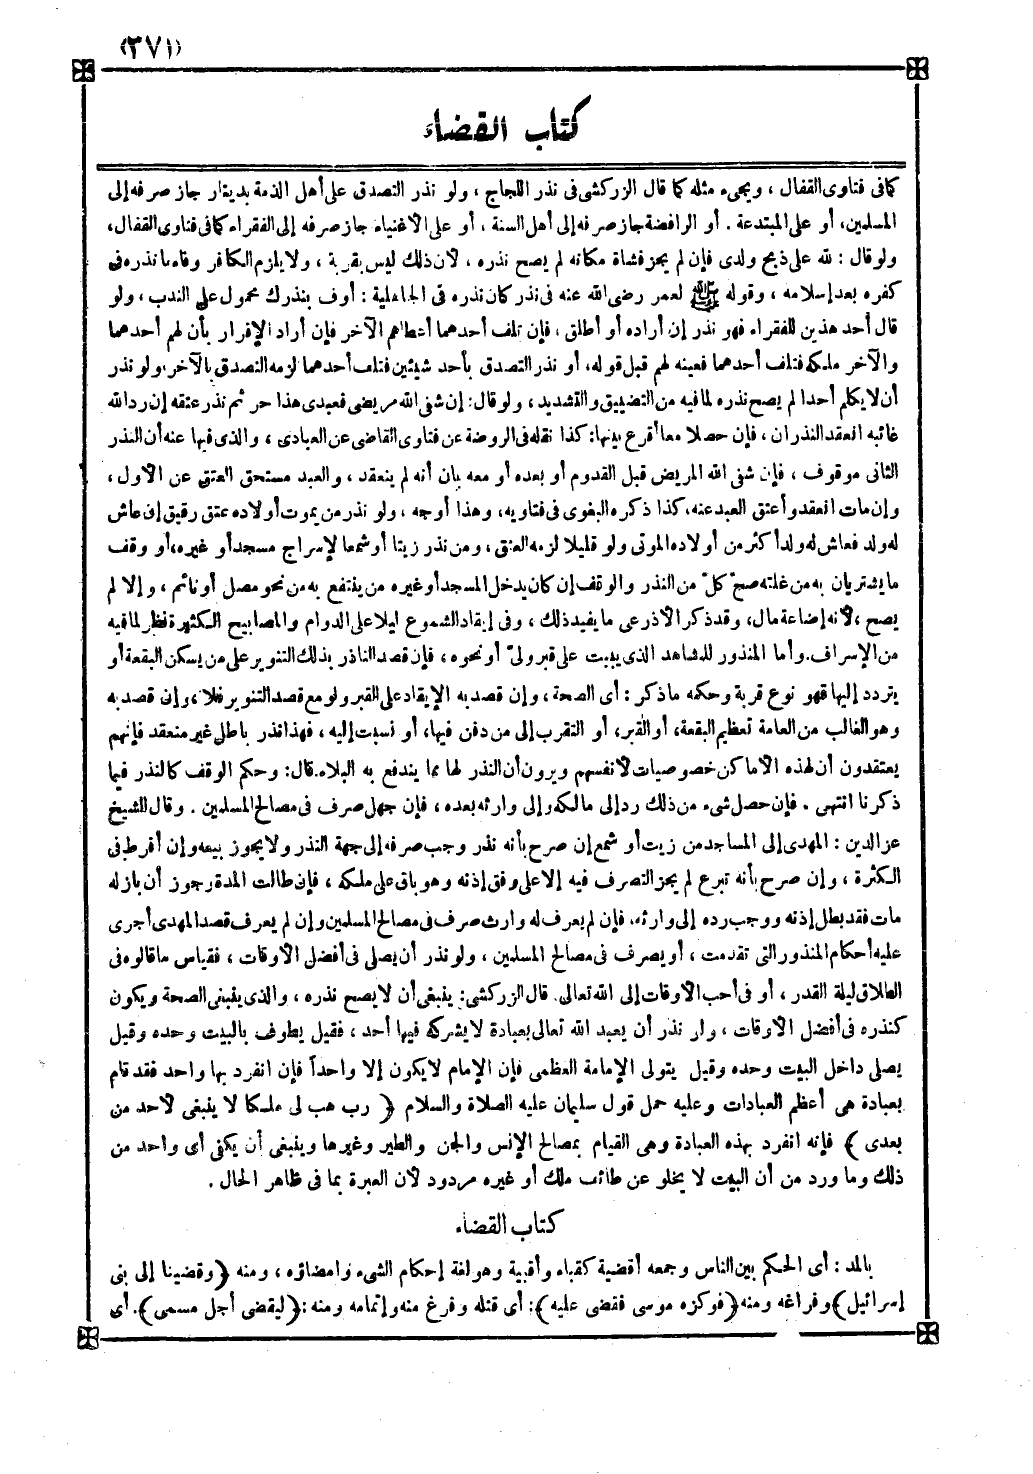 (٣٧١)
كتاب القضاء
كما فى فتاوى القفال ، ويجىء مثله كما قال الزركشى فى نذر اللجاج ، ولو نذر التصدق على أهل الذمة بدينار جاز صرفه إلى
المسلمين، أو على المبتدعة . أو الرافضة جاز صرفه إلى أهل السنة ، أو على الأغنياء جاز صرفه إلى الفقراء كما فى فتاوى القفال،
ولو قال : لله على ذبح ولدى فإن لم يجز فشاة مكانه لم يصح نذره ، لأن ذلك ليس بقربة ، ولا يلزم الكافر وفاء ما نذره فى
كفره بعد إسلامه ، وقوله ﷺ لعمر رضى الله عنه فى نذر كان نذره فى الجاهلية : أوف بنذرك محمول على الندب ، ولو
قال أحد هذين للفقراء فهو نذر إن أراده أو أطلق ، فإن تلف أحدهما أعطاهم الآخر فإن أراد الإقرار بأن لهم أحدهما
والآخر ملكه فتلف أحدهما فعينه لهم قبل قوله، أو نذر التصدق بأحد شيئين فتلف أحدهما لزمه التصدق بالآخر، ولو نذر
أن لا يكلم أحدا لم يصح نذره لما فيه من التضييق والتشديد ، ولو قال: إن شفى الله مريضى فعبدى هذا حر ثم نذر عتقه إن رد الله
غائبه انعقد النذران ، فإن حصلا معا أقرع بينها: كذا نقله فى الروضة عن فتاوى القاضى عن العبادى ، والذى فيها عنه أن النذر
الثانى موقوف ، فإن شفى الله المريض قبل القدوم أو بعده أو معه بان أنه لم ينعقد ، والعبد مستحق العتق عن الأول ،
وإن مات انعقد وأعتق العبد عنه، كذا ذكره البغوى فى فتاويه، وهذا أوجه ، ولو نذر من يموت أولاده عتق رقيق إن عاش
له ولد فعاش له ولد أكثر من أولاده الموتى ولو قليلا لزمه العتق ، ومن نذر زيتا أو شمعا لإسراج مسجد أو غيره، أو وقف
ما يشتريان به من غلته صحّ كلّ من النذر والوقف إن كان يدخل المسجد أو غيره من ينتفع به من نحو مصل أو نائم ، وإلا لم
يصح ، لأنه إضاعة مال، وقد ذكر الأذرعى ما يفيد ذلك ، وفى إيقاد الشموع ليلا على الدوام والمصابيح الكثيرة نظر لما فيه
من الإسراف. وأما المنذور للمشاهد الذى يبيت على قبر ولىّ أو نحوه ، فإن قصد الناذر بذلك التنوير على من يسكن البقعة أو
يتردد إليها فهو نوع قربة وحكمه ما ذكر : أى الصحة ، وإن قصد به الإيقاد على القبر ولو مع قصد التنوير فلا ، وإن قصد به
وهو الغالب من العامة تعظيم البقعة، أو القبر، أو التقرب إلى من دفن فيها، أو نسبت إليه ، فهذا نذر باطل غير منعقد فإنهم
يعتقدون أن لهذه الأماكن خصوصيات لأنفسهم ويرون أن النذر لها مما يندفع به البلاء. قال: وحكم الوقف كالنذر فيما
ذكرنا انتهى . فإن حصل شىء من ذلك رد إلى مالكه وإلى وارثه بعده ، فإن جهل صرف فى مصالح المسلمين . وقال للشيخ
عز الدين : المهدى إلى المساجد من زيت أو شمع إن صرح بأنه نذر وجب صرفه إلى جهة النذر ولا يجوز بيعه وإن أفرط فى
الكثرة ، وإن صرح بأنه تبرع لم يجز التصرف فيه إلا على وفق إذنه وهو باق على ملكه ، فإن طالت المدة وجوز أن باذله
مات فقد بطل إذنه ووجب رده إلى وارثه، فإن لم يعرف له وارث صرف فى مصالح المسلمين وإن لم يعرف قصد المهدى أجرى
عليه أحكام المنذور التى تقدمت ، أو يصرف فى مصالح المسلمين ، ولو نذر أن يصلى فى أفضل الأوقات ، فقياس ما قالوه فى
الطلاق ليلة القدر ، أو فى أحب الأوقات إلى الله تعالى. قال الزركشى: ينبغى أن لا يصح نذره ، والذى ينبغى الصحة ويكون
كنذره فى أفضل الأوقات ، وإن نذر أن يعبد الله تعالى بعبادة لا يشركه فيها أحد ، فقيل يطوف بالبيت وحده وقيل
يصلى داخل البيت وحده وقيل يتولى الإمامة العظمى فإن الإمام لا يكون إلا واحداً فإن انفرد بها واحد فقد قام
بعبادة هى أعظم العبادات وعليه حمل قول سليمان عليه الصلاة والسلام ﴿ رب هب لى ملكا لا ينبغى لأحد من
بعدى ﴾ فإنه انفرد بهذه العبادة وهى القيام بمصالح الإنس والجن والطير وغيرها وينبغى أن يكفى أى واحد من
ذلك وما ورد من أن البيت لا يخلو عن طائف ملك أو غيره مردود لأن العبرة بما فى ظاهر الحال .
كتاب القضاء
بالمد : أى الحكم بين الناس وجمعه أقضية كقباء وأقبية وهو لغة إحكام الشىء وإمضاؤه ، ومنه ﴿وقضينا إلى بنى
إسرائيل﴾ وفراغه ومنه ﴿فوكزه موسى فقضى عليه﴾: أى قتله وفرغ منه وإتمامه ومنه :﴿ليقضى أجل مسمى﴾. أى